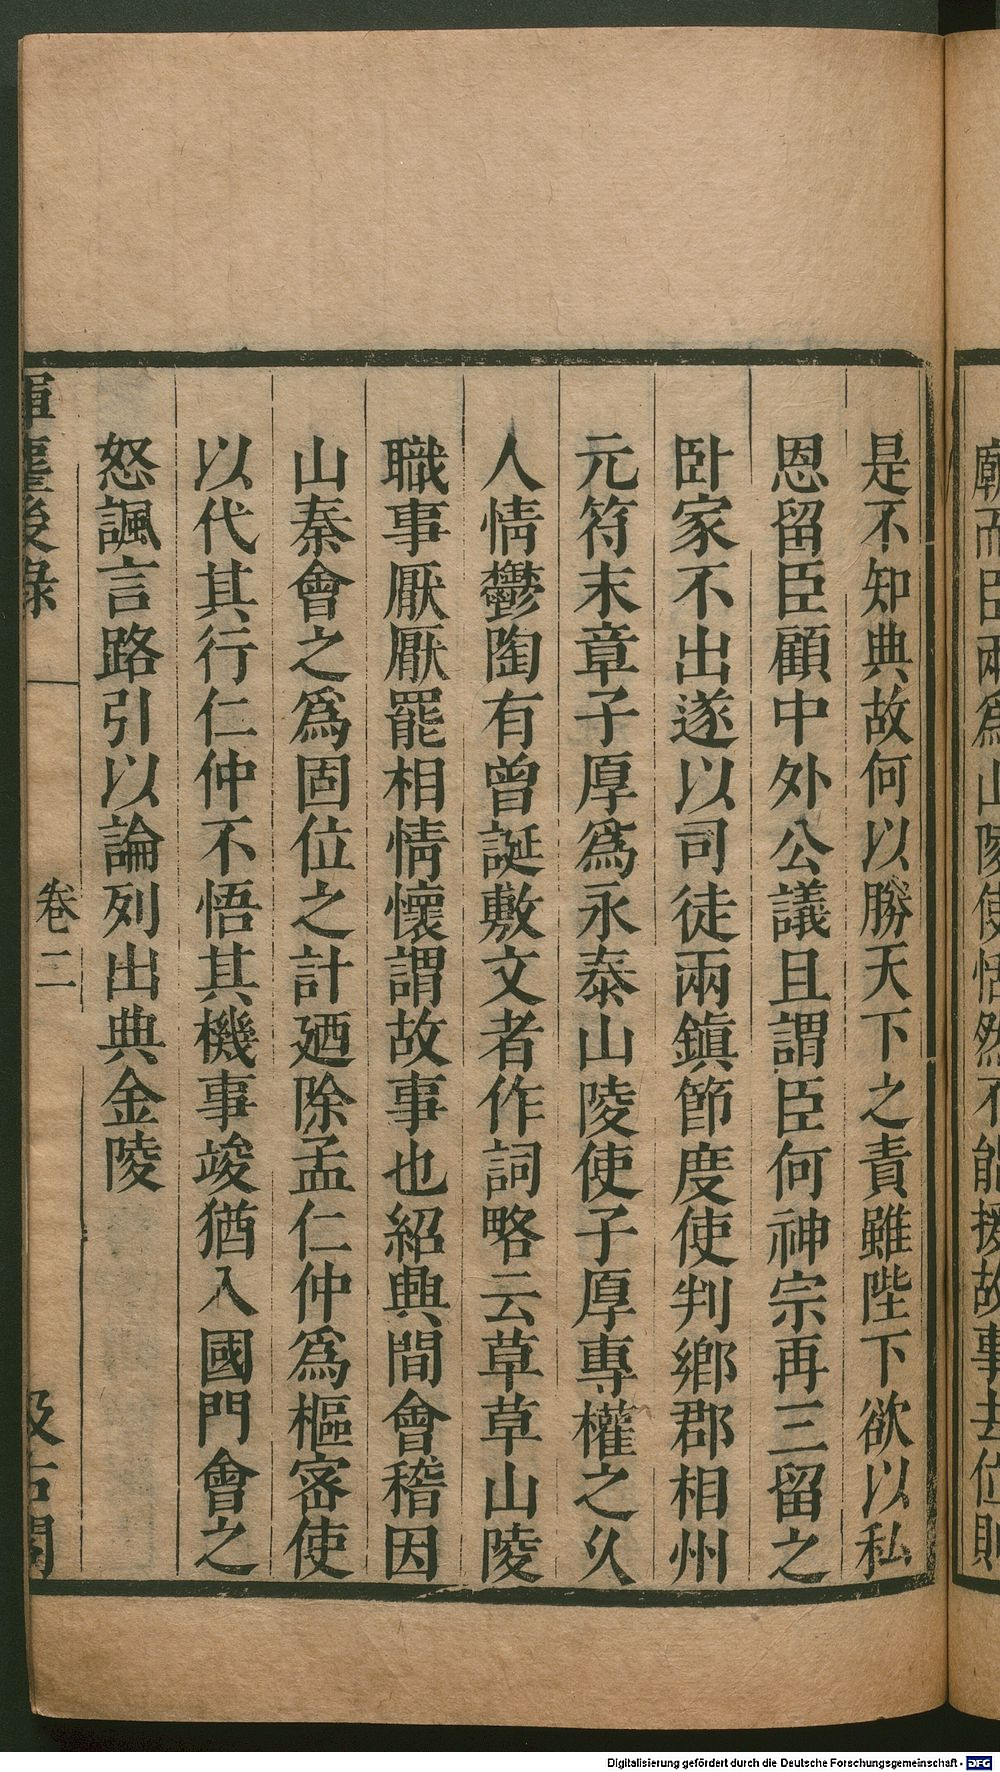 廟而臣兩爲山陵使恬然不能援故事去位則
是不知典故何以勝天下之責雖陛下欲以私
恩留臣顧中外公議且謂臣何神宗再三留之
卧家不出遂以司徒兩鎮節度使判鄉郡相州
元符末章子厚爲永泰山陵使子厚專權之久
人情鬱陶有曾誕敷文者作詞略云草草山陵
職事厭厭罷相情懷謂故事也紹興間會稽因
山秦會之爲固位之計廼除孟仁仲爲樞密使
以代其行仁仲不悟其機事竣猶入國門會之
怒諷言路引以論列出典金陵
揮麈後錄
卷二
汲古閣
Digitalisierung gefördert durch die Deutsche Forschungsgemeinschaft - DFG